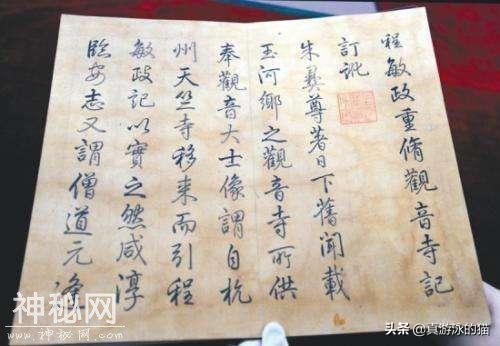 程敏政重脩觀音寺記
訂訛
朱彝尊著日下舊聞載
玉河鄉之觀音寺所供
奉觀音大士像謂自杭
州天竺寺移来而引程
敏政記以實之然咸淳
臨安志又謂僧道元
神秘网
头条 @真游泳的猫